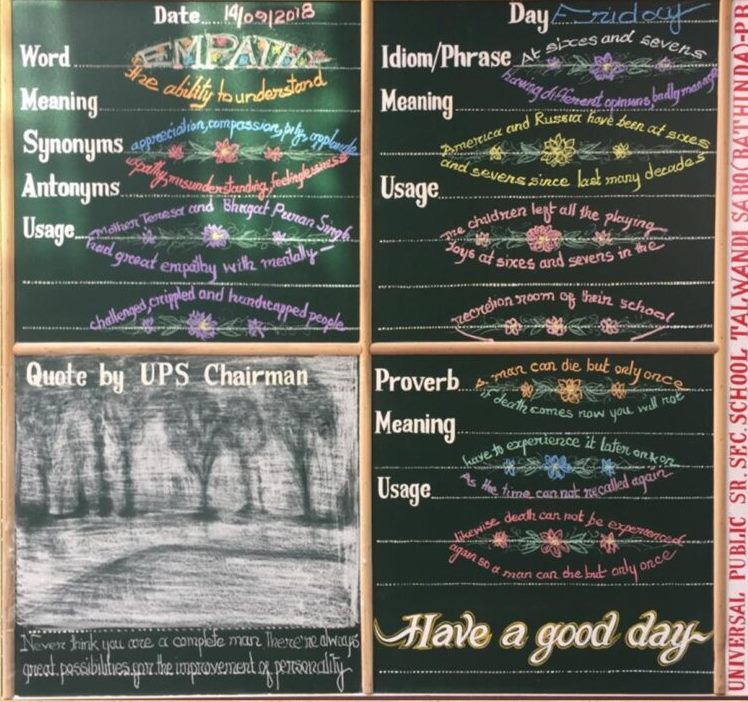 Date 14/09/2018
Word EMPATHY
the ability to understand
Meaning
Synonyms appreciation, compassion, pity, applaude
Antonyms apathy, misunderstanding, feelinglessness
Usage Mother Teresa and Bhagat Puran Singh
had great empathy with mentally
challenged, crippled and handicapped people
Day Friday
Idiom/Phrase At sixes and sevens
Meaning having different opinions, badly manage
America and Russia have been at sixes
and sevens since last many decades
Usage
The children left all the playing
toys at sixes and sevens in the
recretion room of their school
Quote by UPS Chairman
Never think you are a complete man There're always
great possibilities for the improvement of personality
Proverb A man can die but only once
Meaning if death comes now you will not
have to experience it later on
Usage As the time can not recalled again
likewise death can not be experienced
again so a man can die but only once
Have a good day
UNIVERSAL PUBLIC SR. SEC. SCHOOL TALWANDI SABO (BATHINDA)-PB